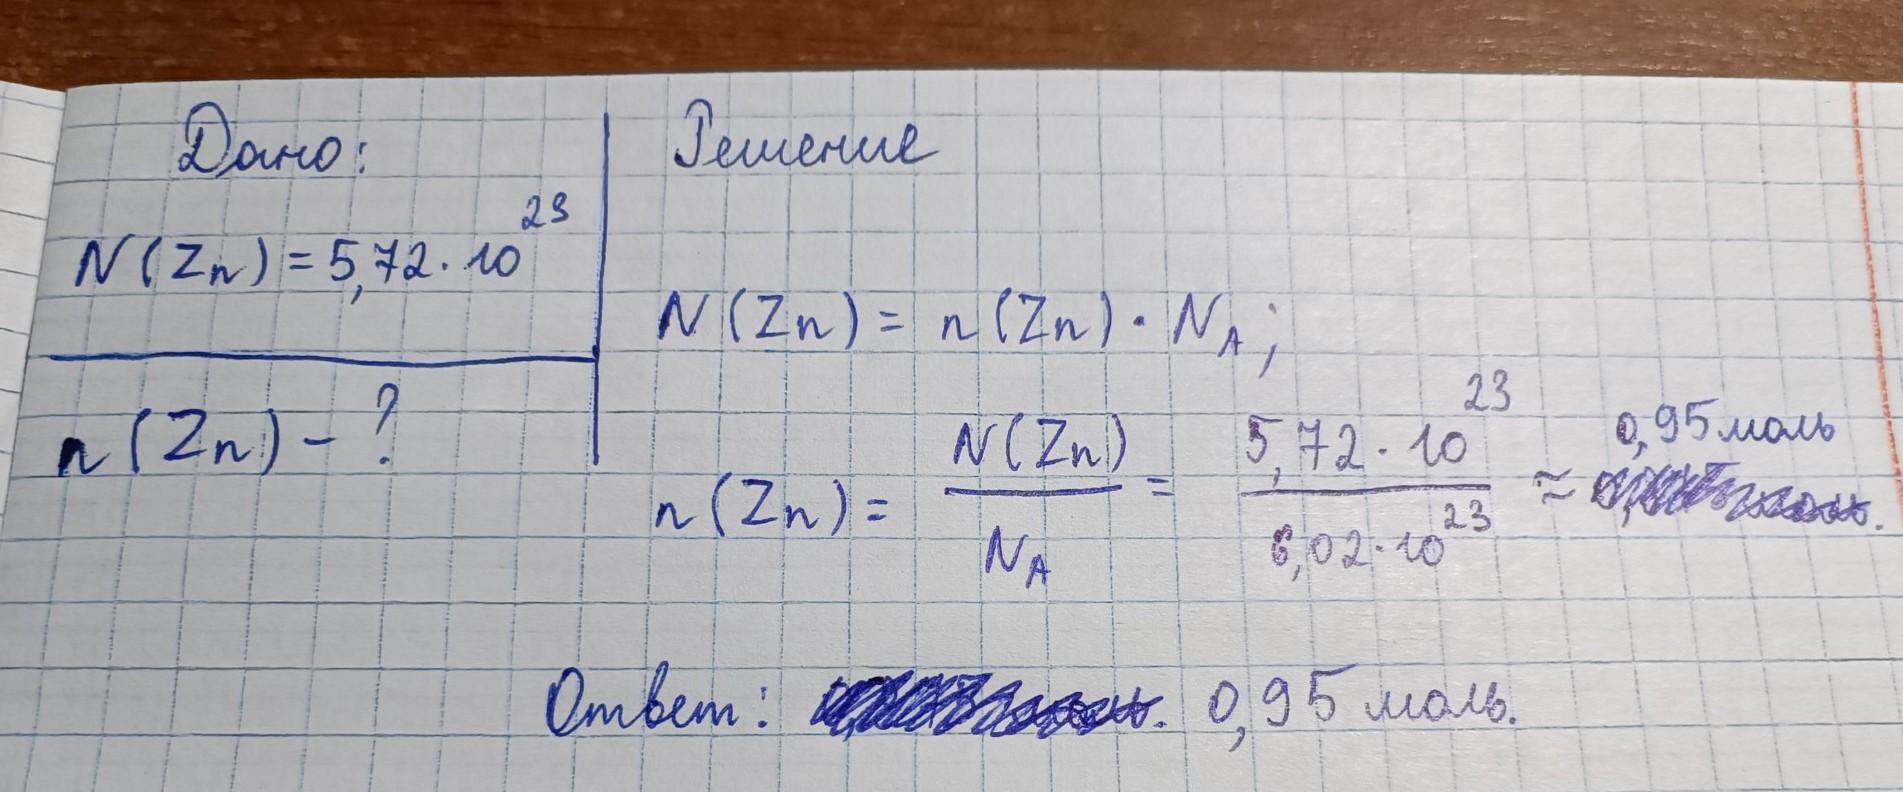 Дано:
N(Zn) = 5,72 · 10²³
n(Zn) - ?
Решение
N(Zn) = n(Zn) · N_A;
n(Zn) = N(Zn)/N_A = 5,72 · 10²³/6,02 · 10²³ ≈ 0,95 моль
Ответ: 0,95 моль.